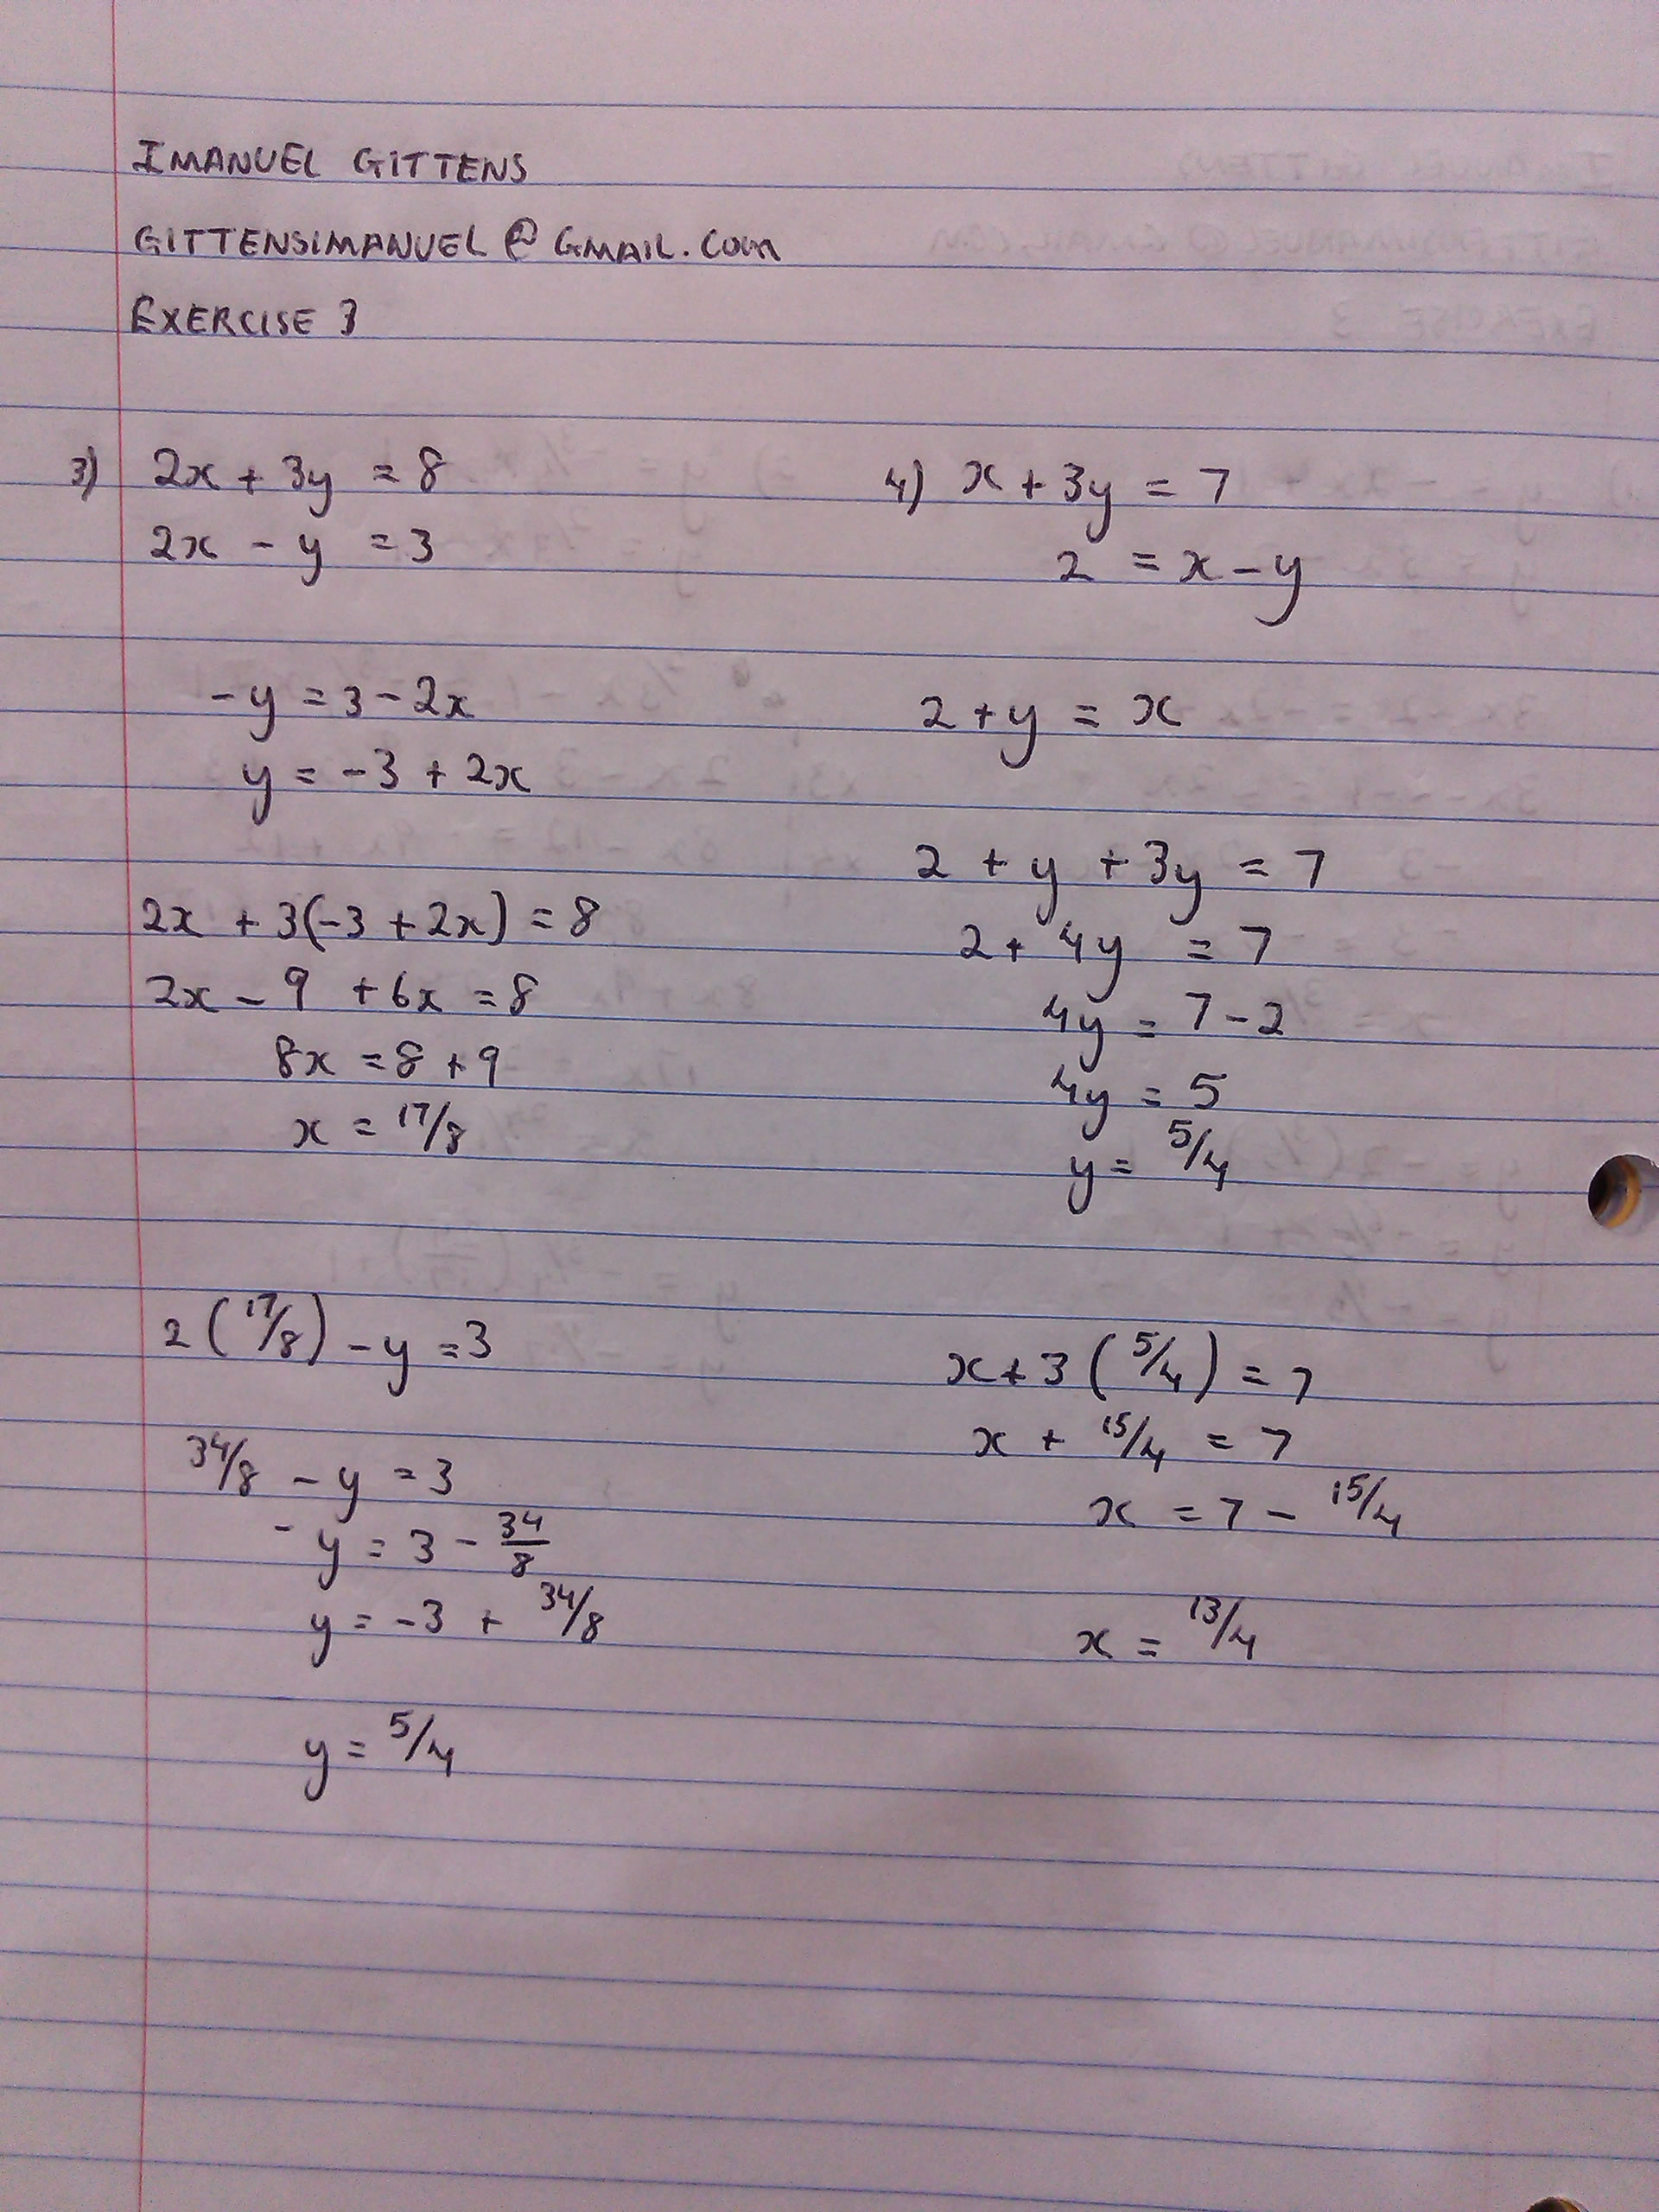 IMANUEL GITTENS
GITTENSIMANUEL@GMAIL.COM
EXERCISE 3
3) 2x + 3y = 8
2x - y = 3
-y = 3 - 2x
y = -3 + 2x
2x + 3(-3 + 2x) = 8
2x - 9 + 6x = 8
8x = 8 + 9
x = 17/8
2(17/8) - y = 3
34/8 - y = 3
-y = 3 - 34/8
y = -3 + 34/8
y = 5/4
4) x + 3y = 7
2 = x - y
2 + y = x
2 + y + 3y = 7
2 + 4y = 7
4y = 7 - 2
4y = 5
y = 5/4
x + 3(5/4) = 7
x + 15/4 = 7
x = 7 - 15/4
x = 13/4